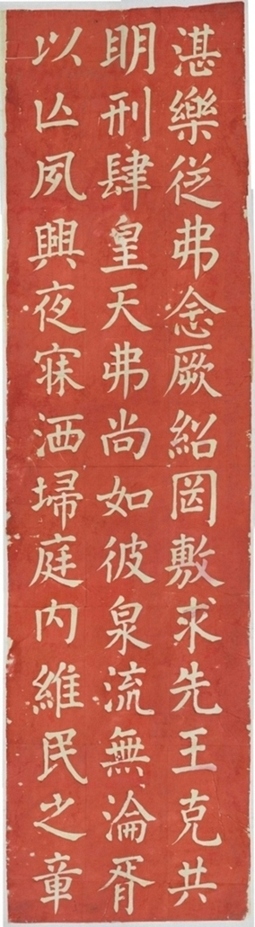 湛樂従弗念厥紹罔敷求先王克共
明刑肆皇天弗尚如彼泉流無淪胥
以亾夙興夜寐洒埽庭内維民之章